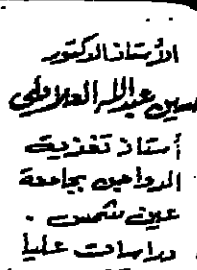 الأستاذ الدكتور
حسين عبدالله
أستاذ تغذية
الدواجن بجامعة
عين شمس .
دراسات عليا